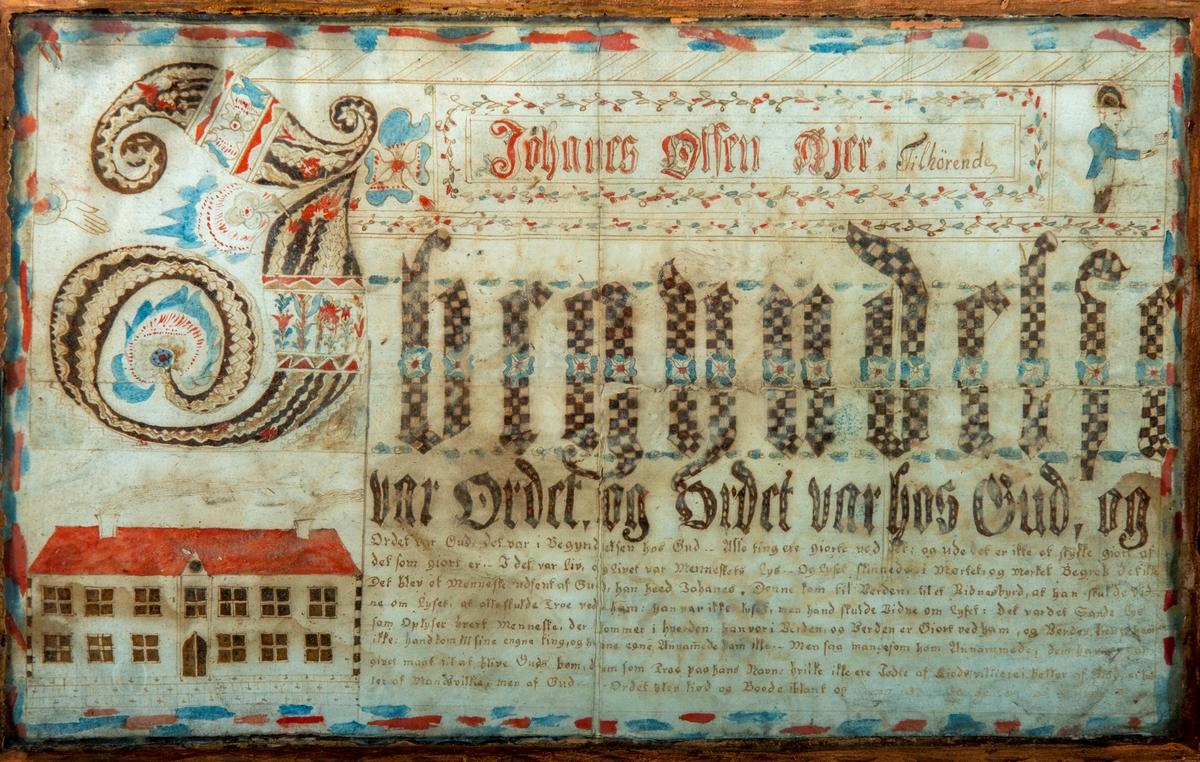 Johanes Olsen Ajer. Tilhörende,
I
begyndelse
var Ordet, og Ordet var hos Gud, og
Ordet var Gud: det var i Begyndelsen hos Gud. Alle ting ere giorte ved det: og uden det er ikke et stykke giort af
det som giort er. I det var Liv, og Livet var Menneskets Lys. Og Lyset skinnede i Morket; og Morket Begreb det ikke
Det blev et Menneske udsent af Gud: han heed Johanes, Denne kom til Verden: til et Vidnesbyrd, at han skulde Vid-
ne om Lyset, at alle skulde Troe ved ham: han var ikke lyset, men hand skulde Vidne om Lyset: det var det Sande Lys
som Oplyser hvert Menneske, der kommer i Verden: han vor i Verden, og Verden er Giort ved ham, og Verden
ikke: hand kom til sine engne ting, og hans egne Annamede ham ikke. Men saa mange som ham Annammede, dem
givet magt til at blive Guds børn, dem som Troe paa hans Navn: hvilke ikke ere fødte af Blod, villie
ler af Mands vilke, men af Gud. Ordet blev kiød og Boede iblant os